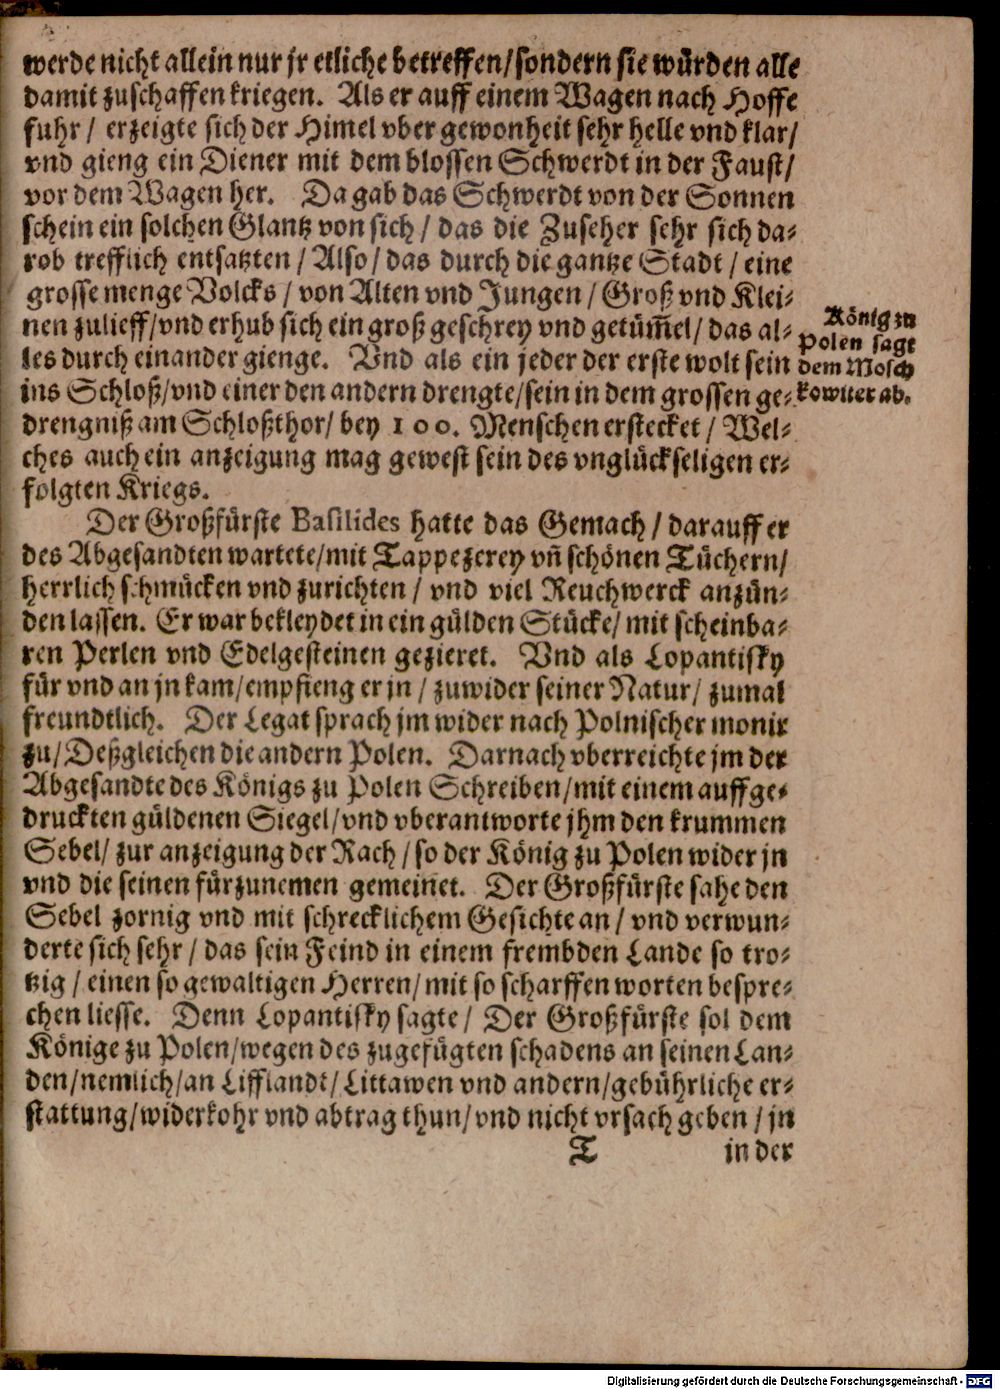 werde nicht allein nur jr etliche betreffen/sondern sie würden alle
damit zuschaffen kriegen. Als er auff einem Wagen nach Hoffe
fuhr/ erzeigte sich der Himel vber gewonheit sehr helle vnd klar/
vnd gieng ein Diener mit dem blossen Schwerdt in der Faust/
vor dem Wagen her. Da gab das Schwerdt von der Sonnen
schein ein solchen Glantz von sich/ das die Zuseher sehr sich da⸗
rob trefflich entsatzten/ Also/ das durch die gantze Stadt/ eine
grosse menge Volcks/ von Alten vnd Jungen/ Groß vnd Klei⸗
nen zulieff/vnd erhub sich ein groß geschrey vnd getüm̃el/ das al⸗
les durch einander gienge. Vnd als ein jeder der erste wolt sein
ins Schloß/vnd einer den andern drengte/sein in dem grossen ge⸗
drengniß am Schloßthor/ bey 100. Menschen erstecket/ Wel⸗
ches auch ein anzeigung mag gewest sein des vnglückseligen er⸗
folgten Kriegs.
König zu
Polen sagt
dem Mosch
kowiter ab.
Der Großfürste Basilides hatte das Gemach/ darauff er
des Abgesandten wartete/mit Tappezerey vñ schönen Tüchern/
herrlich schmücken vnd zurichten/ vnd viel Reuchwerck anzün⸗
den lassen. Er war bekleydet in ein gülden Stücke/ mit scheinba⸗
ren Perlen vnd Edelgesteinen gezieret. Vnd als Lopantisky
für vnd an jn kam/empfieng er jn/ zuwider seiner Natur/ zumal
freundtlich. Der Legat sprach jm wider nach Polnischer monir
zu/ Deßgleichen die andern Polen. Darnach vberreichte jm der
Abgesandte des Königs zu Polen Schreiben/mit einem auffge⸗
druckten güldenen Siegel/vnd vberantworte jhm den krummen
Sebel/ zur anzeigung der Rach/so der König zu Polen wider jn
vnd die seinen fürzunemen gemeinet. Der Großfürste sahe den
Sebel zornig vnd mit schrecklichem Gesichte an/ vnd verwun⸗
derte sich sehr/ das sein Feind in einem frembden Lande so tro⸗
tzig/ einen so gewaltigen Herren/ mit so scharffen worten bespre⸗
chen liesse. Denn Lopantisky sagte/ Der Großfürste sol dem
Könige zu Polen/wegen des zugefügten schadens an seinen Lan⸗
den/nemlich/an Lifflandt/Littawen vnd andern/gebührliche er⸗
stattung/widerkohr vnd abtrag thun/vnd nicht vrsach geben/ jn
T in der
Digitalisierung gefördert durch die Deutsche Forschungsgemeinschaft - DFG